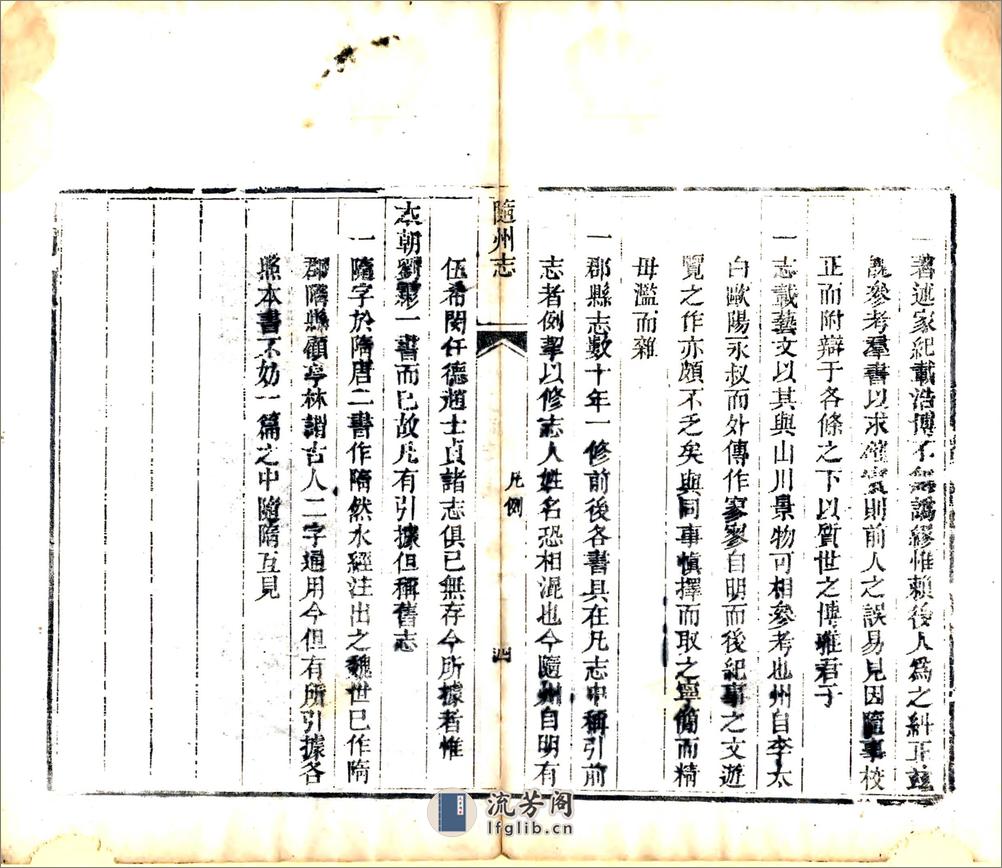 一著述家紀載浩博不無譌繆惟賴後人為之糾正茲
說參考羣書以求確實則前人之誤易見因隨事校
正而附辯于各條之下以質世之博雅君子
一志載藝文以其與山川景物可相參考也州自李太
白歐陽永叔而外傳作寥寥自明而後紀事之文遊
覽之作亦頗不乏矣與同事慎擇而取之寧簡而精
毋濫而雜
一郡縣志數十年一修前後各書具在凡志中稱引前
志者例挈以修志人姓名恐相混也今隨州自明有
隨州志
凡例
四
伍希閔任德趙士貞諸志俱已無存今所據者惟
本朝劉彩一書而已故凡有引據但稱舊志
一隨字於隋唐二書作隋然水經注出之魏世已作隋
郡隋縣顧亭林謂古人二字通用今但有所引據各
照本書不妨一篇之中隨隋互見
流芳阁
lfglib.cn